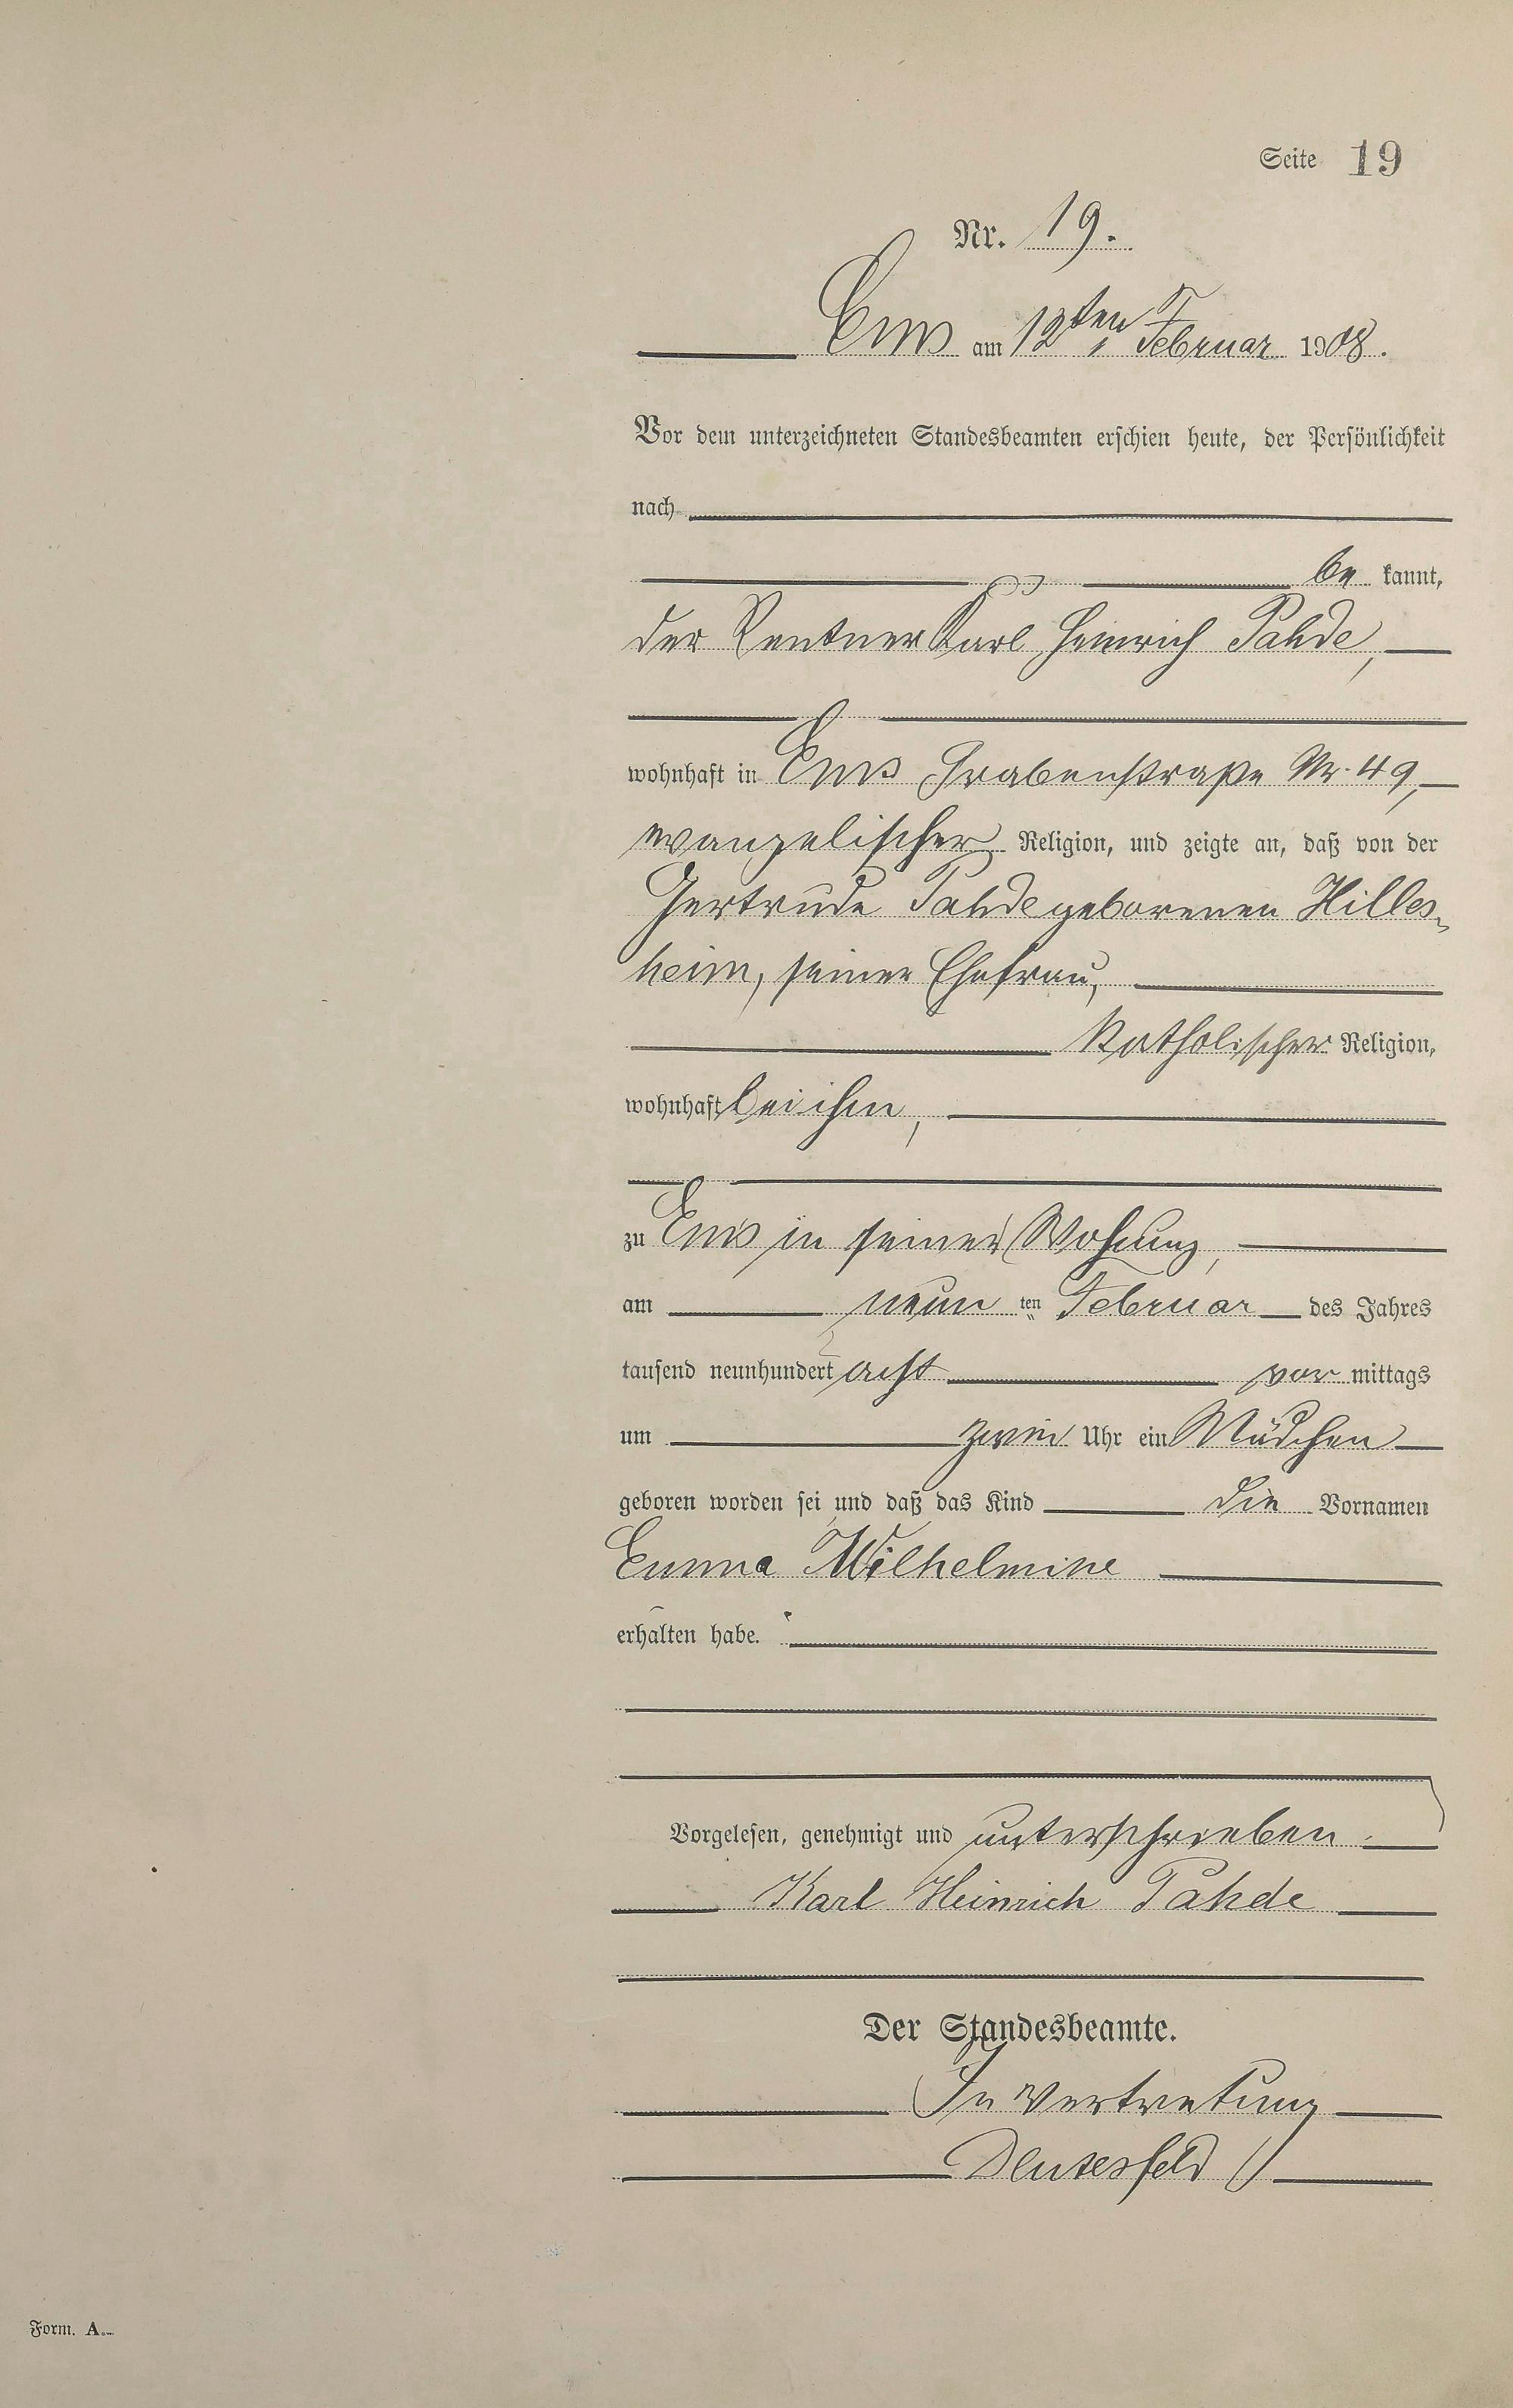 Seite 19
Nr. 19.
Ems am 12ten Februar 1908.
Vor dem unterzeichneten Standesbeamten erschien heute, der Persönlichkeit
nach
be kannt,
der Rentner Karl Heinrich Pahde,
wohnhaft in Ems Grabenstraße Nr. 49,
evangelischer Religion, und zeigte an, daß von der
Gertrude Pahde geborenen Hilles-
heim, seiner Ehefrau,
katholischer Religion,
wohnhaft bei ihm,
zu Ems in seiner Wohnung,
am neun ten Februar des Jahres
tausend neunhundert acht vor mittags
um zwei Uhr ein Mädchen
geboren worden sei und daß das Kind die Vornamen
Emma Wilhelmine
erhalten habe.
Vorgelesen, genehmigt und unterschrieben.
Karl Heinrich Pahde
Der Standesbeamte.
In Vertretung
Form. A.